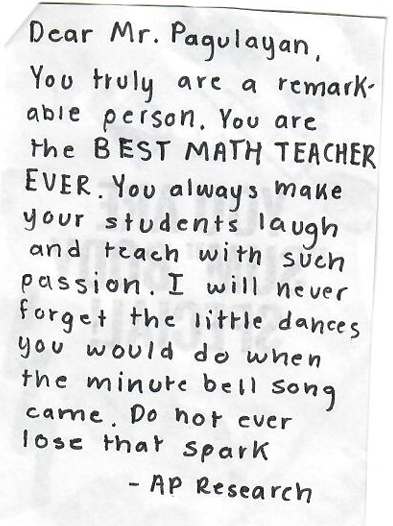 Dear Mr. Pagulayan,
You truly are a remark-
able person. You are
the BEST MATH TEACHER
EVER. You always make
your students laugh
and teach with such
passion. I will never
forget the little dances
you would do when
the minute bell song
came. Do not ever
lose that spark
- AP Research